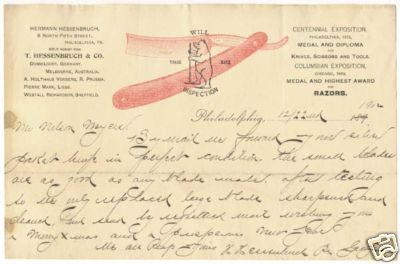 HERMANN HESSENBRUCH,
8 NORTH FIFTH STREET,
PHILADELPHIA, PA.
SOLE AGENT FOR
T. HESSENBRUCH & CO.
DUSSELDORF, GERMANY.
MELBOURNE, AUSTRALIA.
A. HOLTHAUS VORSERS, R. PRUSSIA.
PIERRE MANN, LIEGE.
WESTALL RICHARDSON, SHEFFIELD.
WILL
TRADE MARK
INSPECTION
CENTENNIAL EXPOSITION,
PHILADELPHIA, 1876,
MEDAL AND DIPLOMA
FOR
KNIVES, SCISSORS AND TOOLS.
COLUMBIAN EXPOSITION,
CHICAGO, 1893,
MEDAL AND HIGHEST AWARD
FOR
RAZORS.
Philadelphia, 12/22nd 189
Mr Nelson Meyer
By mail we forward your silver
pocket knife in perfect condition. The small blades
are as good as any blade made, after testing
so we only replaced large blade sharpened and
cleaned, but
a Merry Xmas and a prosperous New Year
We are Resp Yours
eb